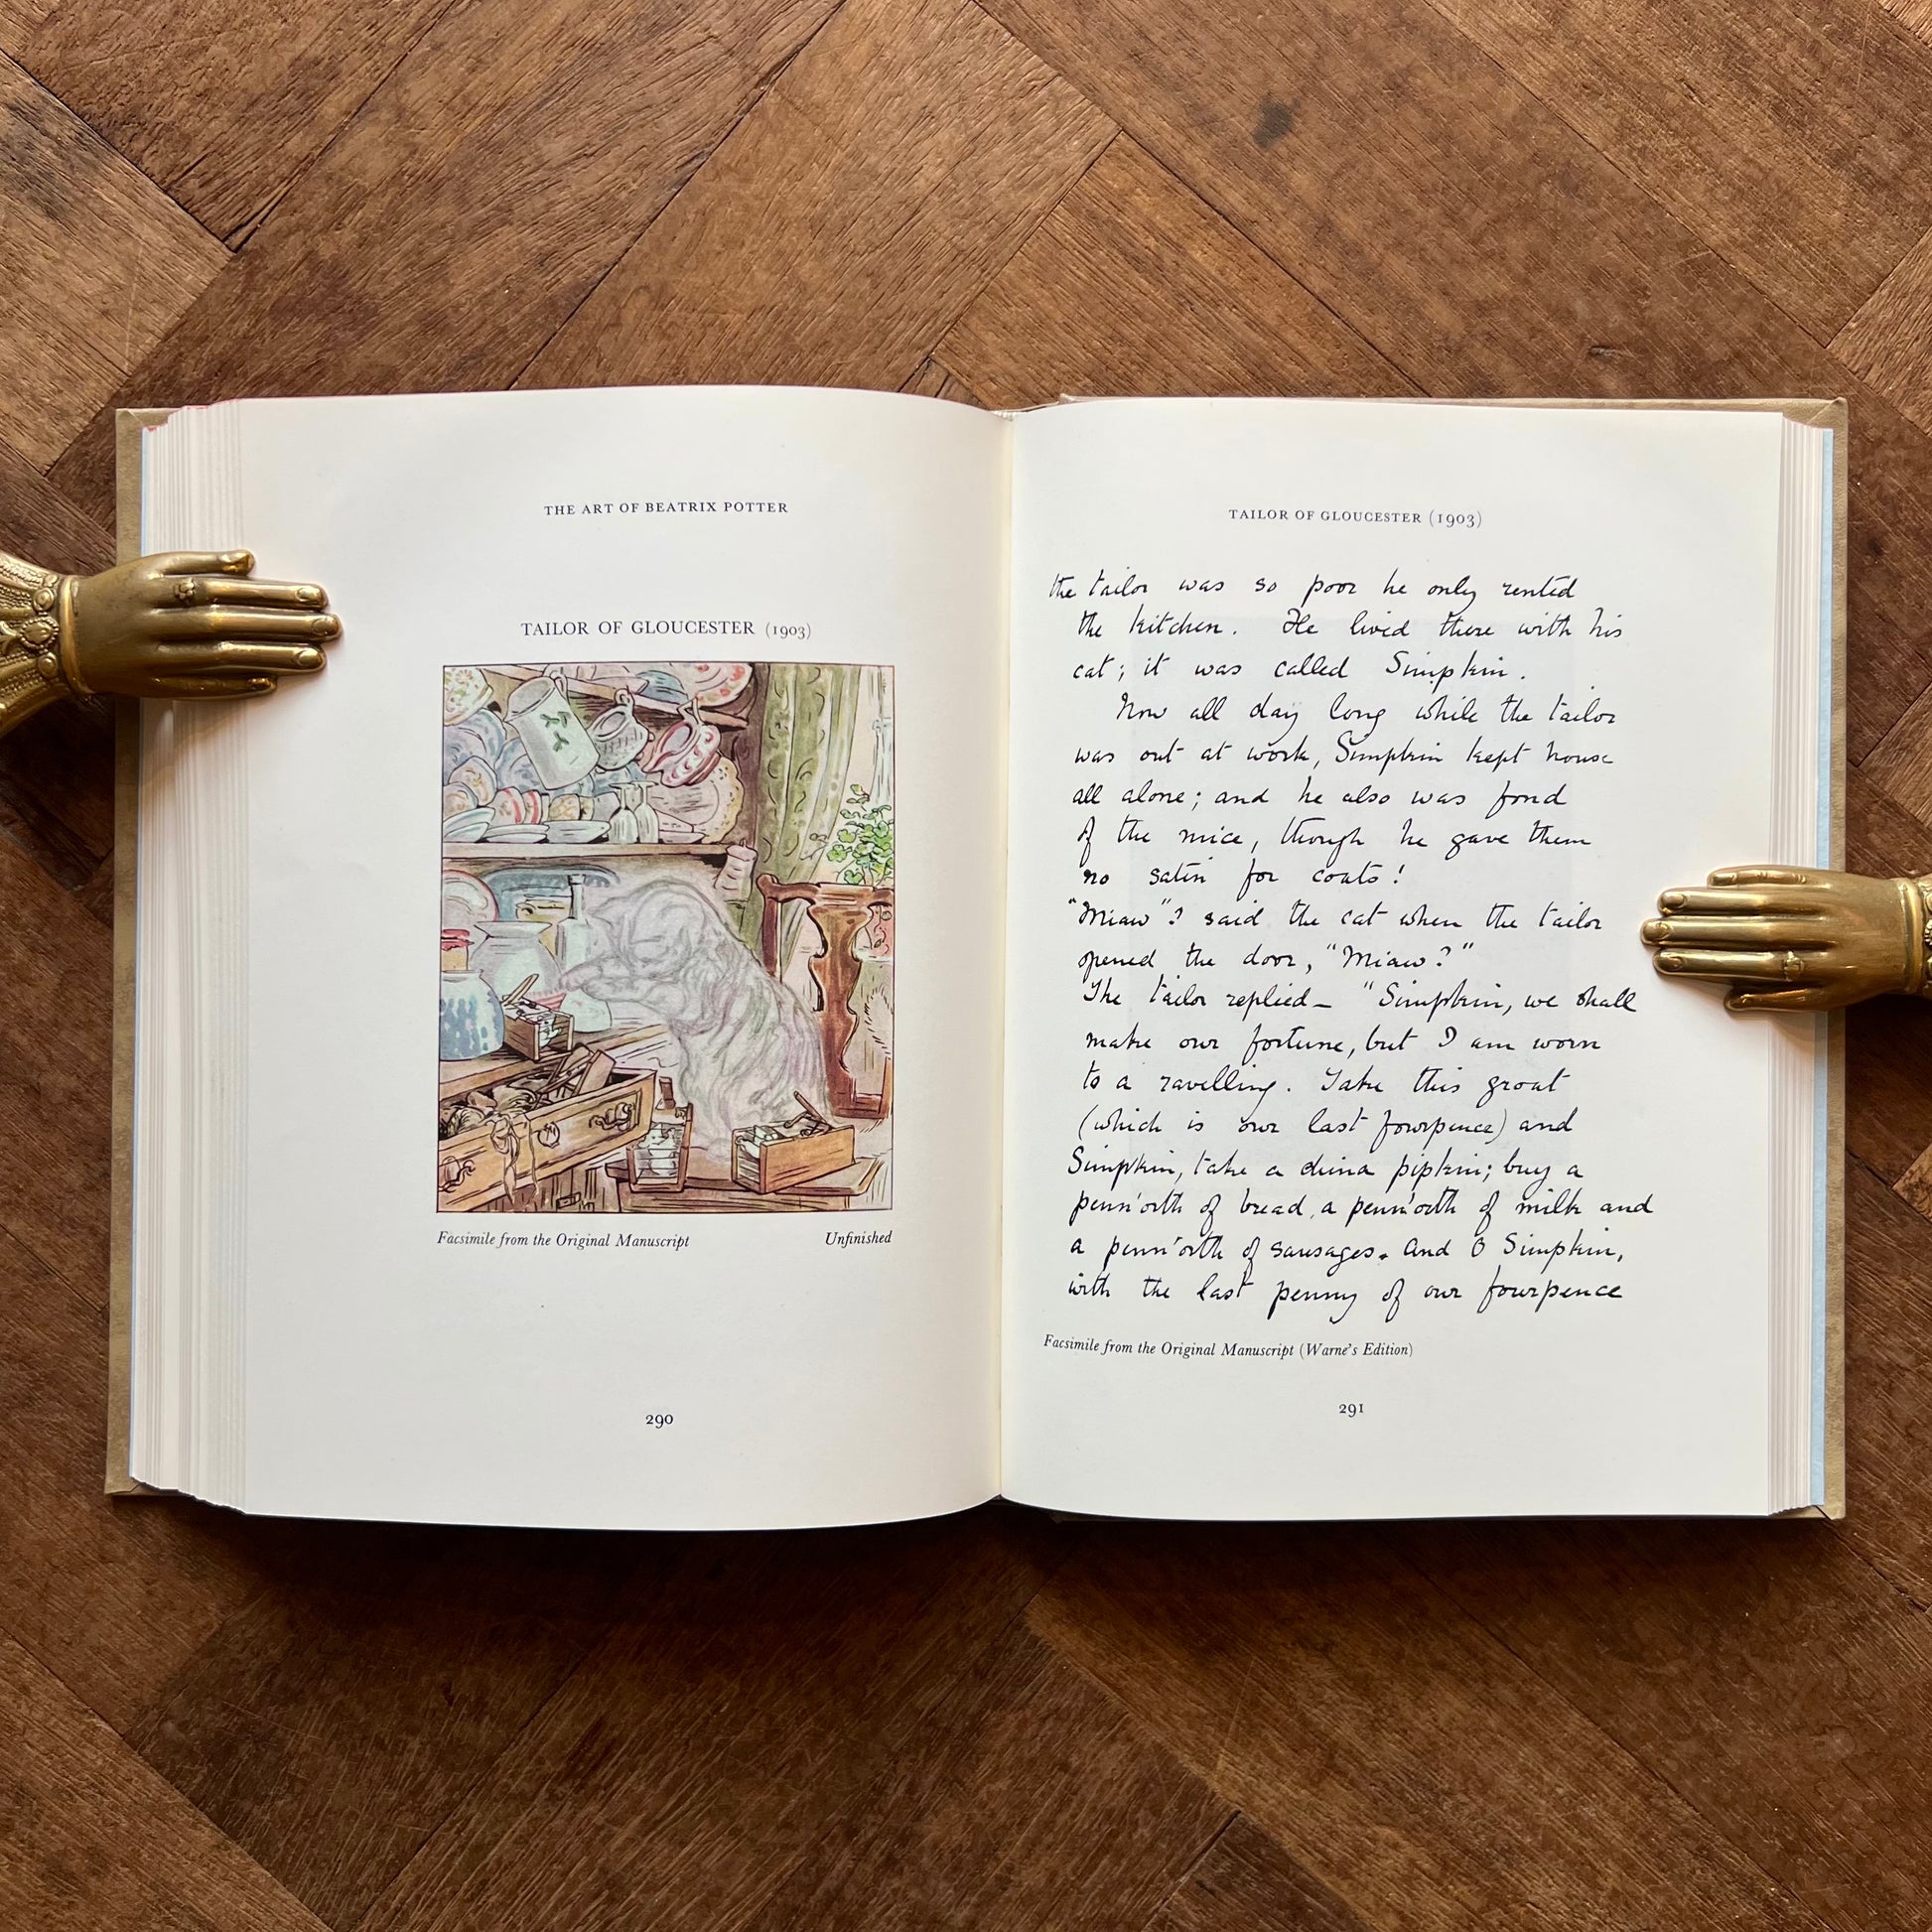 THE ART OF BEATRIX POTTER
TAILOR OF GLOUCESTER (1903)
Facsimile from the Original Manuscript
Unfinished
290
TAILOR OF GLOUCESTER (1903)
the tailor was so poor he only rented
the kitchen. He lived there with his
cat; it was called Simpkin.
Now all day long while the tailor
was out at work, Simpkin kept house
all alone; and he also was fond
of the mice, though he gave them
no satin for coats!
"Miaw"? said the cat when the tailor
opened the door, "Miaw?"
The tailor replied— "Simpkin, we shall
make our fortune, but I am worn
to a ravelling. Take this groat
(which is our last fourpence) and
Simpkin, take a china pipkin; buy a
penn'orth of bread, a penn'orth of milk and
a penn'orth of sausages. And O Simpkin,
with the last penny of our fourpence
Facsimile from the Original Manuscript (Warne's Edition)
291